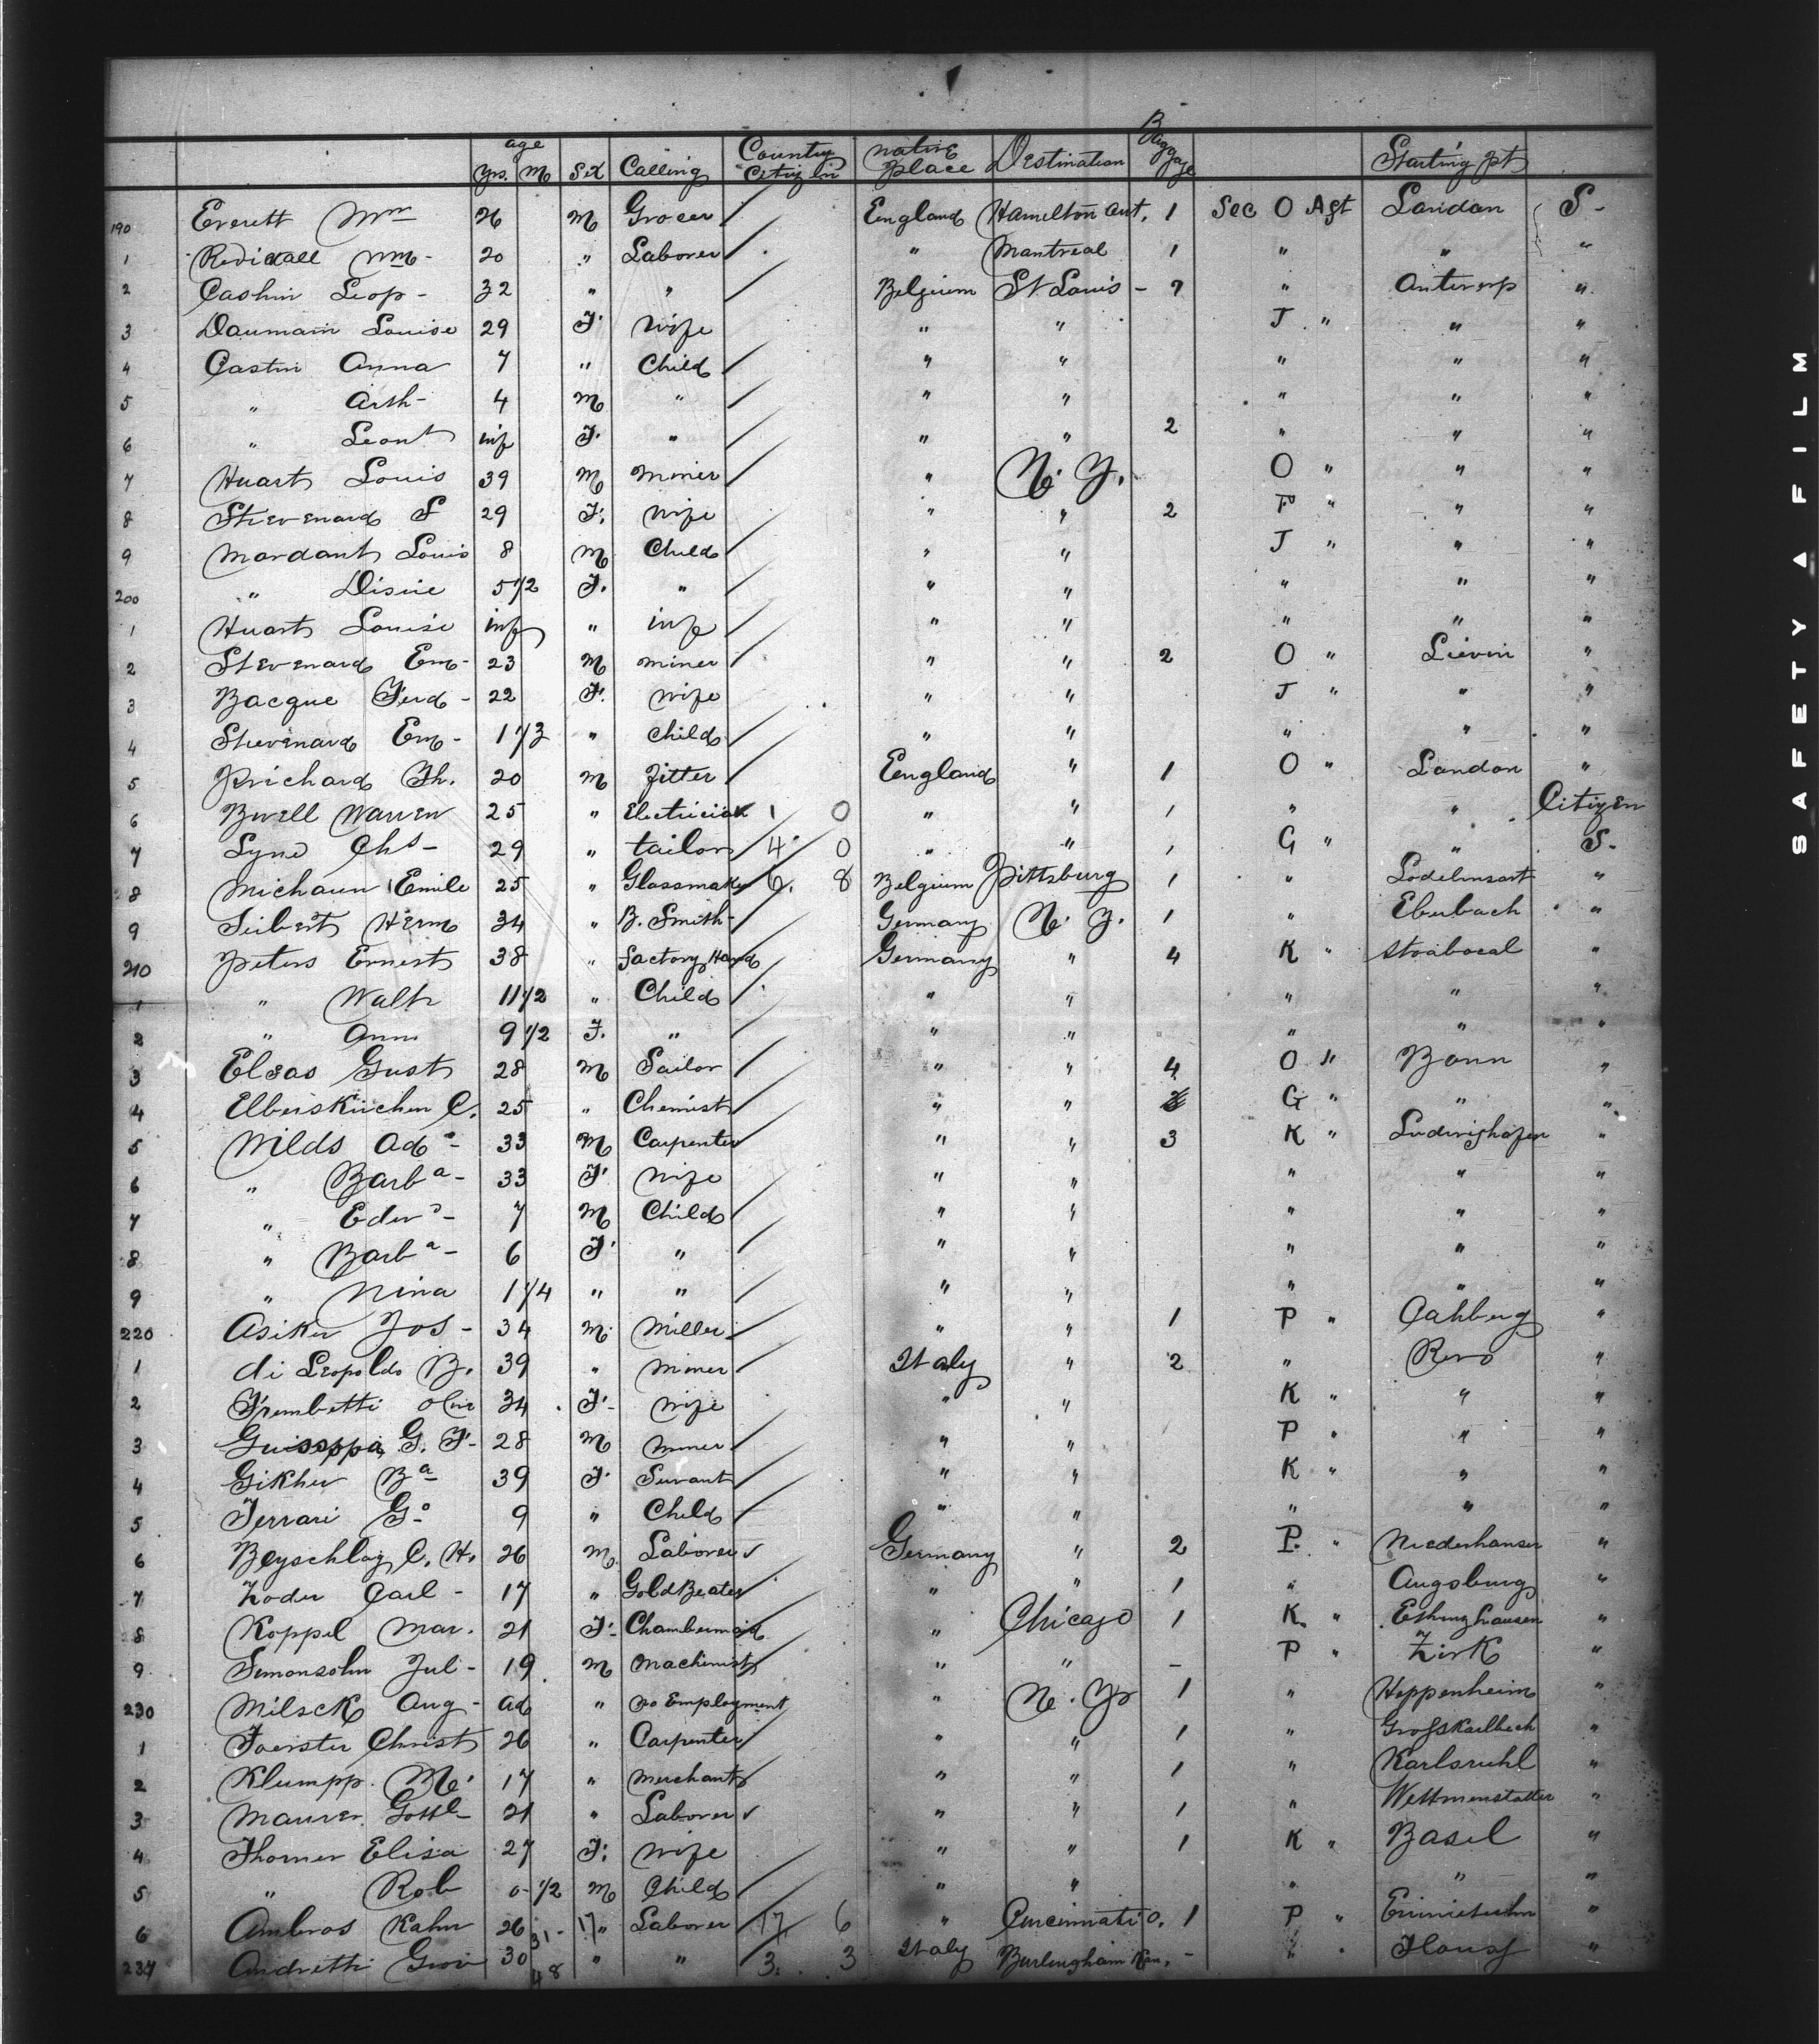 age Yrs. M Sex Calling County Citiz in native Place Destination Baggage Starting pt
190 Everett Wm 26 M Grocer England Hamelton Ont. 1 Sec O Agt London S-
1 Wm- 20 " Laborer " Montreal 1 " " "
2 Cashin Leop- 32 " " Belgium St. Louis - 7 " Antwerp "
3 Daumain Louise 29 F. Wife " " J " " "
4 Castin Anna 7 " Child " " " " "
5 " Arth- 4 M " " " " " "
6 " Leont inf F. " " " 2 " " "
7 Huart Louis 39 M Miner " N. Y. O " " "
8 Stevenard S 29 F. Wife " " 2 F " " "
9 Mordant Louis 8 M Child " " J " " "
200 " Disire 5 1/2 F. " " " " " "
1 Huart Louise inf " inf " " " " "
2 Stevenard Em- 23 M Miner " " 2 O " Lievin "
3 Bacque Ferd- 22 F. Wife " " J " " "
4 Stevenard Em- 1 1/3 " Child " " " " "
5 Prichard Th. 20 M Fitter England " 1 O " London "
6 Warren 25 " Electrician 1 0 " " 1 " " Citizen
7 Lynd Chs- 29 " tailor 4 0 " " 1 G " " S-
8 Michaun Emile 25 " Glassmaker 6. 8 Belgium Pittsburg 1 " Lodelinsart "
9 Seibert Herm 34 " B. Smith- Germany N. Y. 1 " Eberbach "
210 Peters Ernest 38 " factory Hand Germany " 4 K " "
1 " Walt 11 1/2 " Child " " " " "
2 " Ann 9 1/2 F. " " " " " "
3 Elsas Gust 28 M Sailor " " 4 O " Bonn "
4 Elberskirchen C. 25 " Chemist " " G " " "
5 Wilds Ad- 33 M Carpenter " " 3 K " Ludwighafen "
6 " Barba- 33 F. Wife " " " " "
7 " Edw- 7 M Child " " " " "
8 " Barba- 6 F. " " " " " "
9 " Nina 1 1/4 " " " " " " "
220 Asiker Jos- 34 M. Miller " " 1 P " Cahberg "
1 di Leopoldo B. 39 " Miner Italy " 2 " Revo "
2 34 F- Wife " " K " " "
3 Guiseppa G. F- 28 M Miner " " P " " "
4 Gikher Ba 39 F. Servant " " K " " "
5 Ferrari Go 9 " Child " " " " "
6 Beyschlag C. H. 26 M. Laborer Germany " 2 P. " Niederhausen "
7 Zoder Carl- 17 " Gold Beater " " 1 " Augsburg "
8 Koppel Mar. 21 F- Chambermaid " Chicago 1 K. " "
9 Simonsohn Jul- 19 M Machinist " " - P " Zirk "
230 Milsck Aug- ad " no Employment " N. Yr 1 " Heppenheim "
1 Foerster Christ 26 " Carpenter " " 1 " "
2 Klumpp M. 17 " Merchant " " 1 " Karlsruhl "
3 Maurer Gottl- 21 " Laborer " " 1 " Wettmenstatter "
4 Thomer Elisa 27 F. Wife " " 1 K " Basel "
5 " Rob 0- 1/2 M Child " " " " "
6 Ambros Kahn 26 31- 17 " Laborer 17 6 " Cincinnati O. 1 P " "
237 Andretti Giov 30 48 " " 3. 3 Italy Burlingham Kan. - " " "
SAFETY A FILM